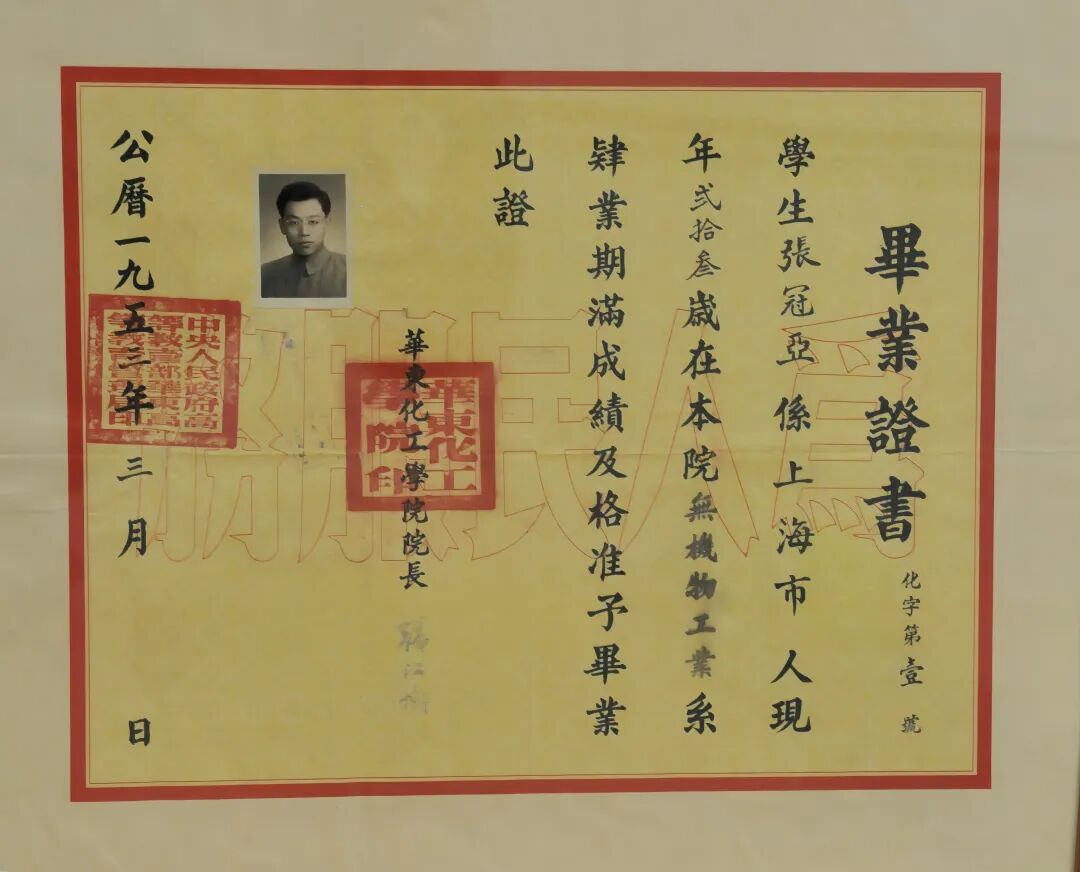 畢業證書
化字第壹號
學生張冠亞係上海市人現
年弍拾叁歲在本院無機物工業系
肄業期滿成績及格准予畢業
此證
華東化工學院院長
公曆一九五三年三月 日
爲人民服務
華東化工
學院印
中央人民政府高
等教育部華東高
等教育管理局印